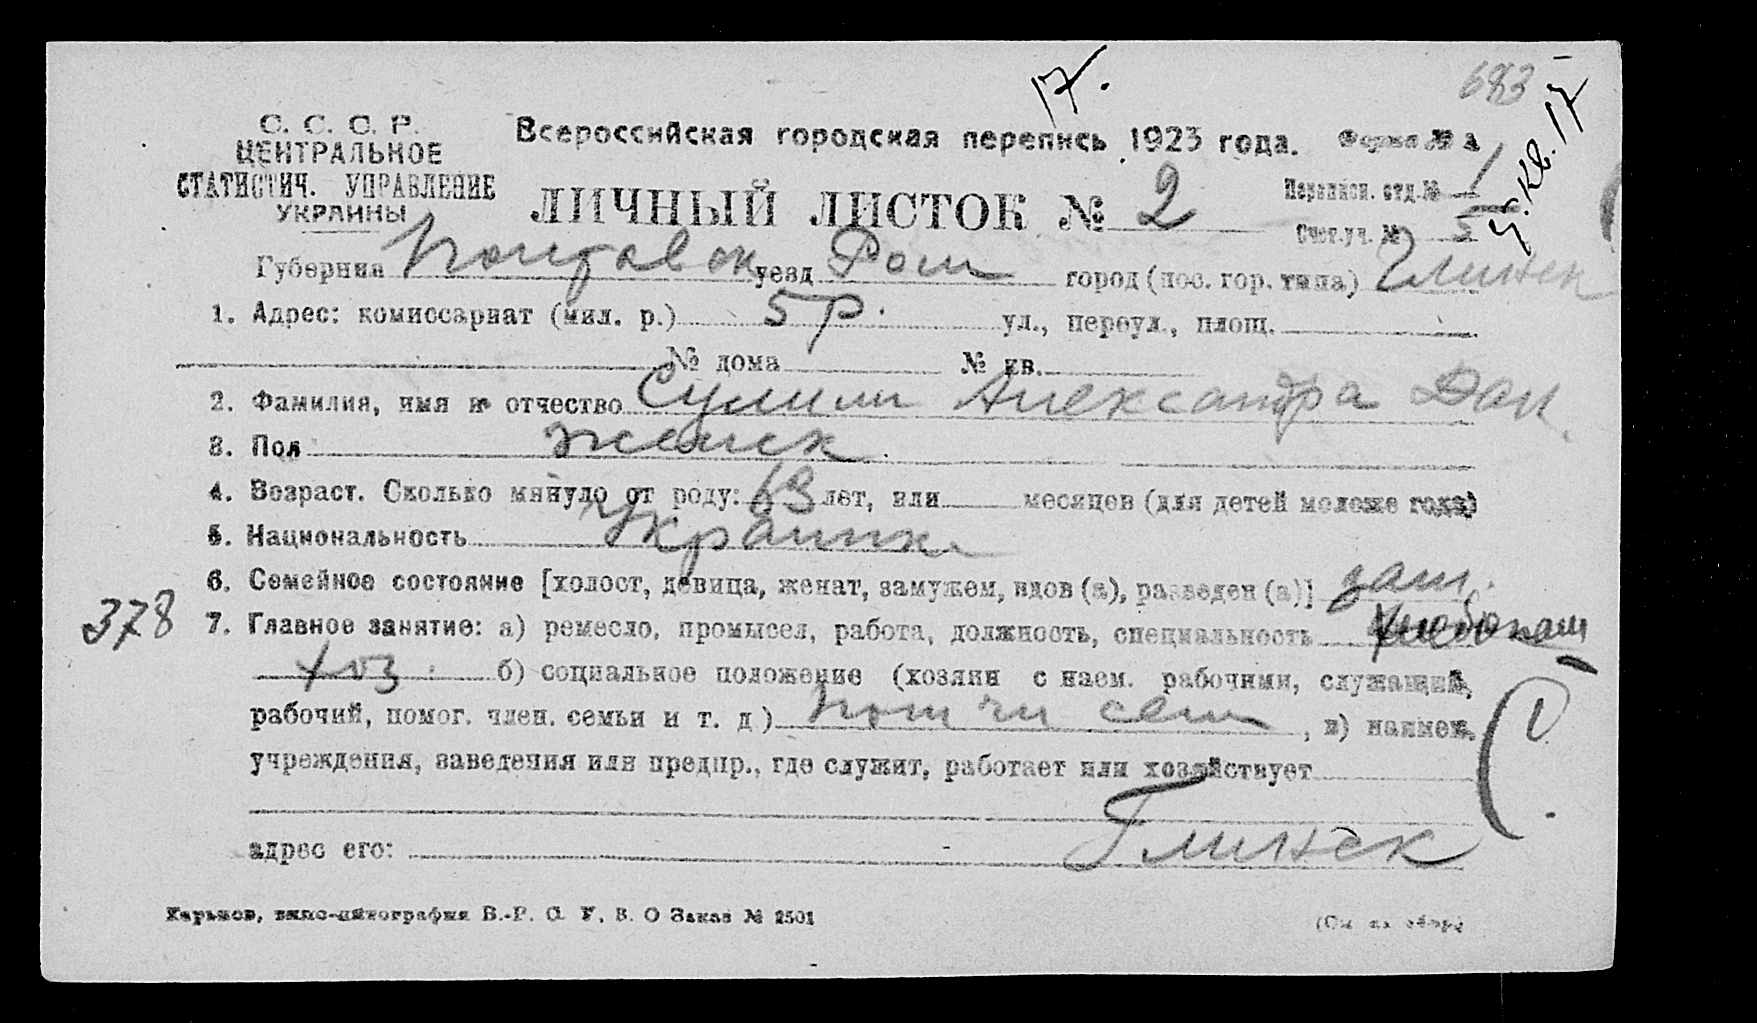 17.
683
С. С. С. Р.
ЦЕНТРАЛЬНОЕ
СТАТИСТИЧ. УПРАВЛЕНИЕ
УКРАИНЫ
Всероссийская городская перепись 1923 года.
Форма № А
ЛИЧНЫЙ ЛИСТОК № 2
Переписн. отд. № 1
Счет. уч. № 5
кв. 17
Губерния Полтавск уезд Ром город (пос. гор. типа) Глинск
1. Адрес: комиссариат (мил. р.) 5 р. ул., переул., площ.
№ дома № кв.
2. Фамилия, имя и отчество Сулим Александра Дан.
3. Пол женск
4. Возраст. Сколько минуло от роду: 63 лет, или месяцев (для детей моложе года)
5. Национальность Украинка
6. Семейное состояние [холост, девица, женат, замужем, вдов (а), разведен (а)] зам.
378
7. Главное занятие: а) ремесло, промысел, работа, должность, специальность хлебопаш
хоз. б) социальное положение (хозяин с наем. рабочими, служащий,
рабочий, помог. член. семьи и т. д) пом чл сем , в) наимен.
учреждения, заведения или предпр., где служит, работает или хозяйствует
1
адрес его: Глинск
Харьков, типо-литография В.-Р. С. У. В. О Заказ № 2501
(См на обор)